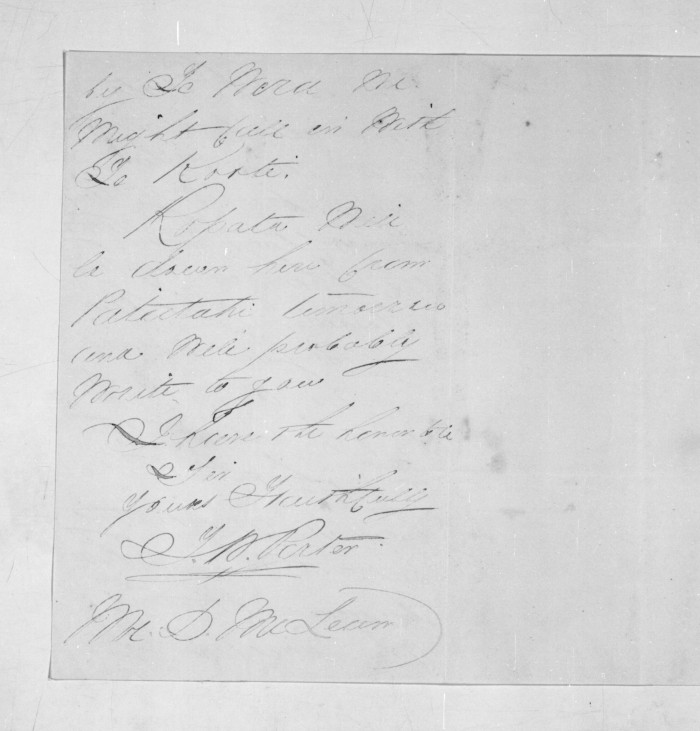 by Te Wera he
Might fall in With
Te Kooti.
Ropata Will
be down here from
Patutahi tomorrow
and Will probably
Write to you
I have the honor to be
Sir
yours Faithfully
J. W. Porter.
Mr. D. McLean